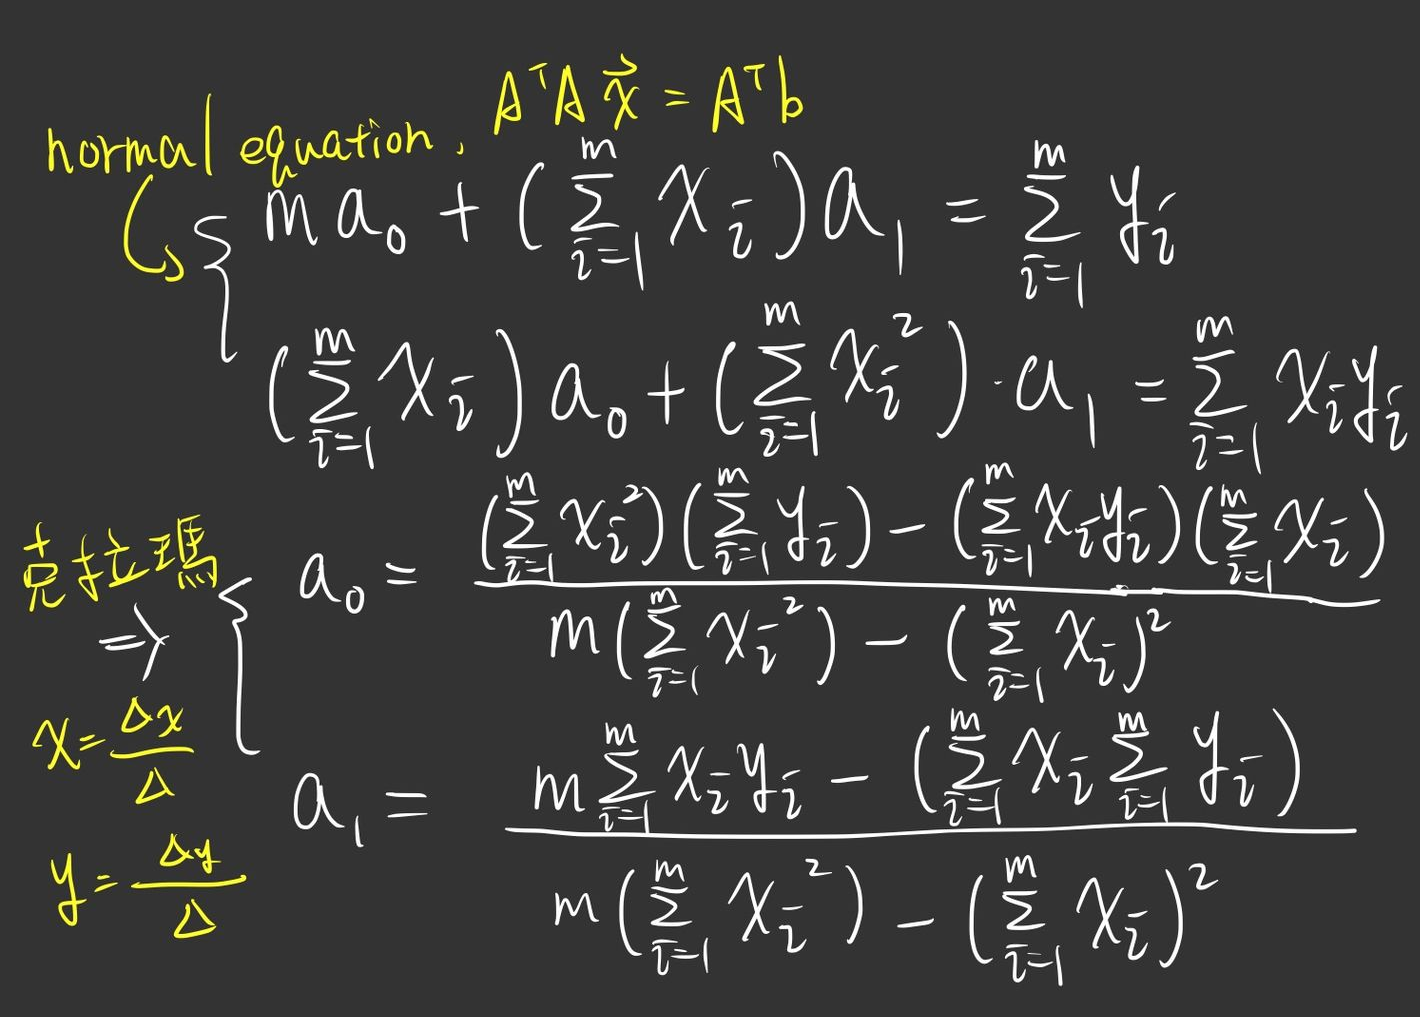 normal equation. AᵀA x⃗ = Aᵀb
{ m a₀ + (∑_{i=1}^{m} xᵢ) a₁ = ∑_{i=1}^{m} yᵢ
(∑_{i=1}^{m} xᵢ) a₀ + (∑_{i=1}^{m} xᵢ²) · a₁ = ∑_{i=1}^{m} xᵢyᵢ
克拉瑪
⇒
{ a₀ = ((∑_{i=1}^{m} xᵢ²)(∑_{i=1}^{m} yᵢ) − (∑_{i=1}^{m} xᵢyᵢ)(∑_{i=1}^{m} xᵢ)) / (m(∑_{i=1}^{m} xᵢ²) − (∑_{i=1}^{m} xᵢ)²)
x = Δx / Δ
a₁ = (m ∑_{i=1}^{m} xᵢyᵢ − (∑_{i=1}^{m} xᵢ ∑_{i=1}^{m} yᵢ)) / (m(∑_{i=1}^{m} xᵢ²) − (∑_{i=1}^{m} xᵢ)²)
y = Δy / Δ